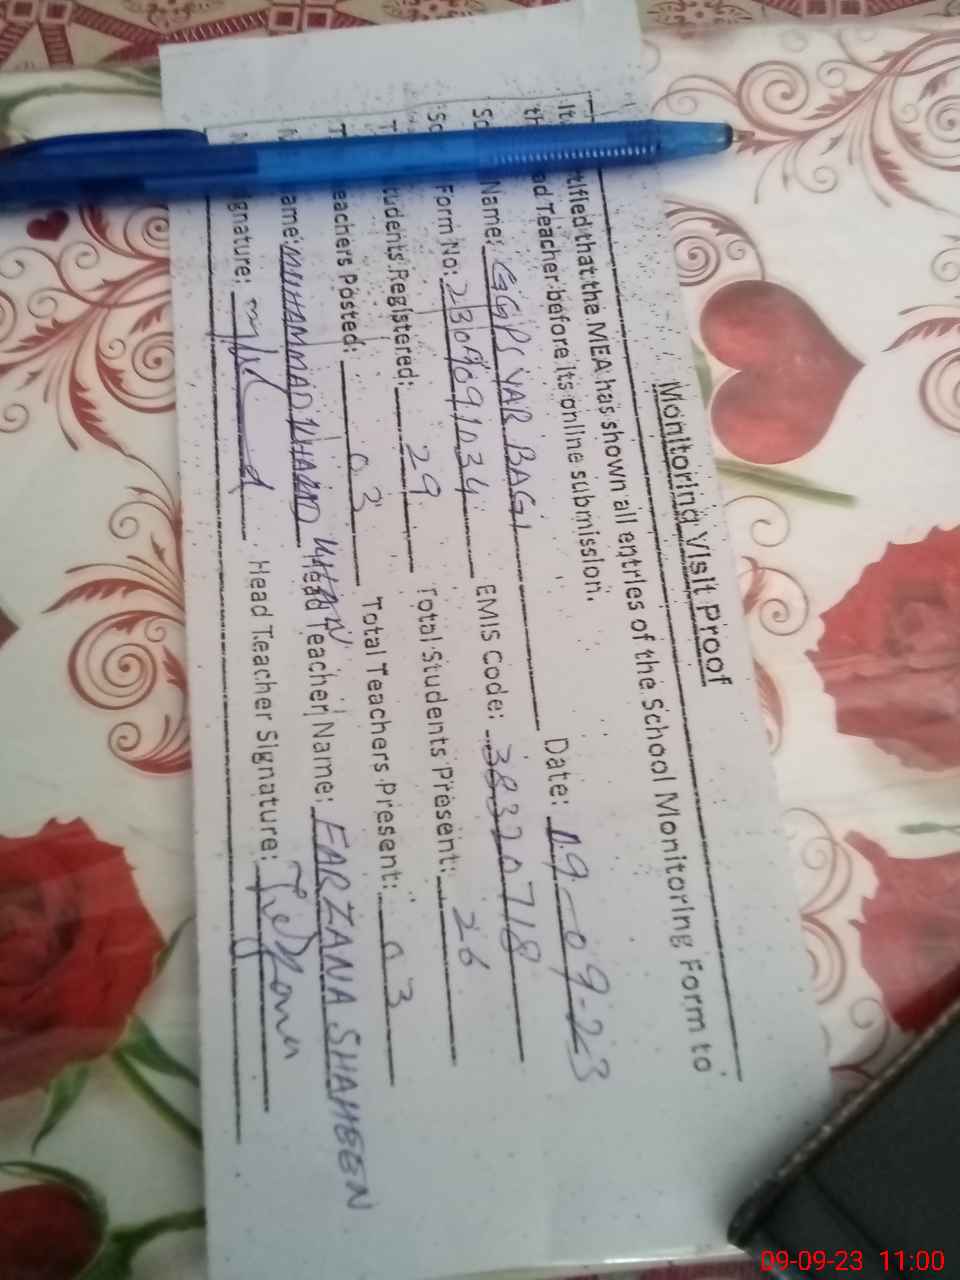 Monitoring Visit Proof
It tified that the MEA has shown all entries of the School Monitoring Form to
th ad Teacher before its online submission.
Sc Name: GGPS YAR BAGI Date: 09-09-23
Sc Form No: 2309091034 EMIS Code: 38320718
T udents Registered: 29 Total Students Present: 26
T eachers Posted: 03 Total Teachers Present: 03
ame: MUHAMMAD KHAN Head Teacher Name: FARZANA SHAHEEN
gnature: Head Teacher Signature:
09-09-23 11:00